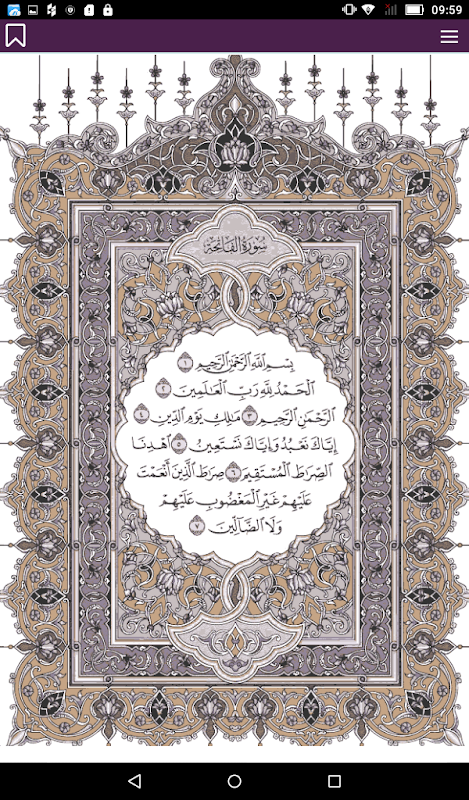 09:59
سورة الفاتحة
بِسْمِ اللَّهِ الرَّحْمَٰنِ الرَّحِيمِ ١
الْحَمْدُ لِلَّهِ رَبِّ الْعَالَمِينَ ٢
الرَّحْمَٰنِ الرَّحِيمِ ٣ مَالِكِ يَوْمِ الدِّينِ ٤
إِيَّاكَ نَعْبُدُ وَإِيَّاكَ نَسْتَعِينُ ٥ اهْدِنَا
الصِّرَاطَ الْمُسْتَقِيمَ ٦ صِرَاطَ الَّذِينَ أَنْعَمْتَ
عَلَيْهِمْ غَيْرِ الْمَغْضُوبِ عَلَيْهِمْ
وَلَا الضَّالِّينَ ٧